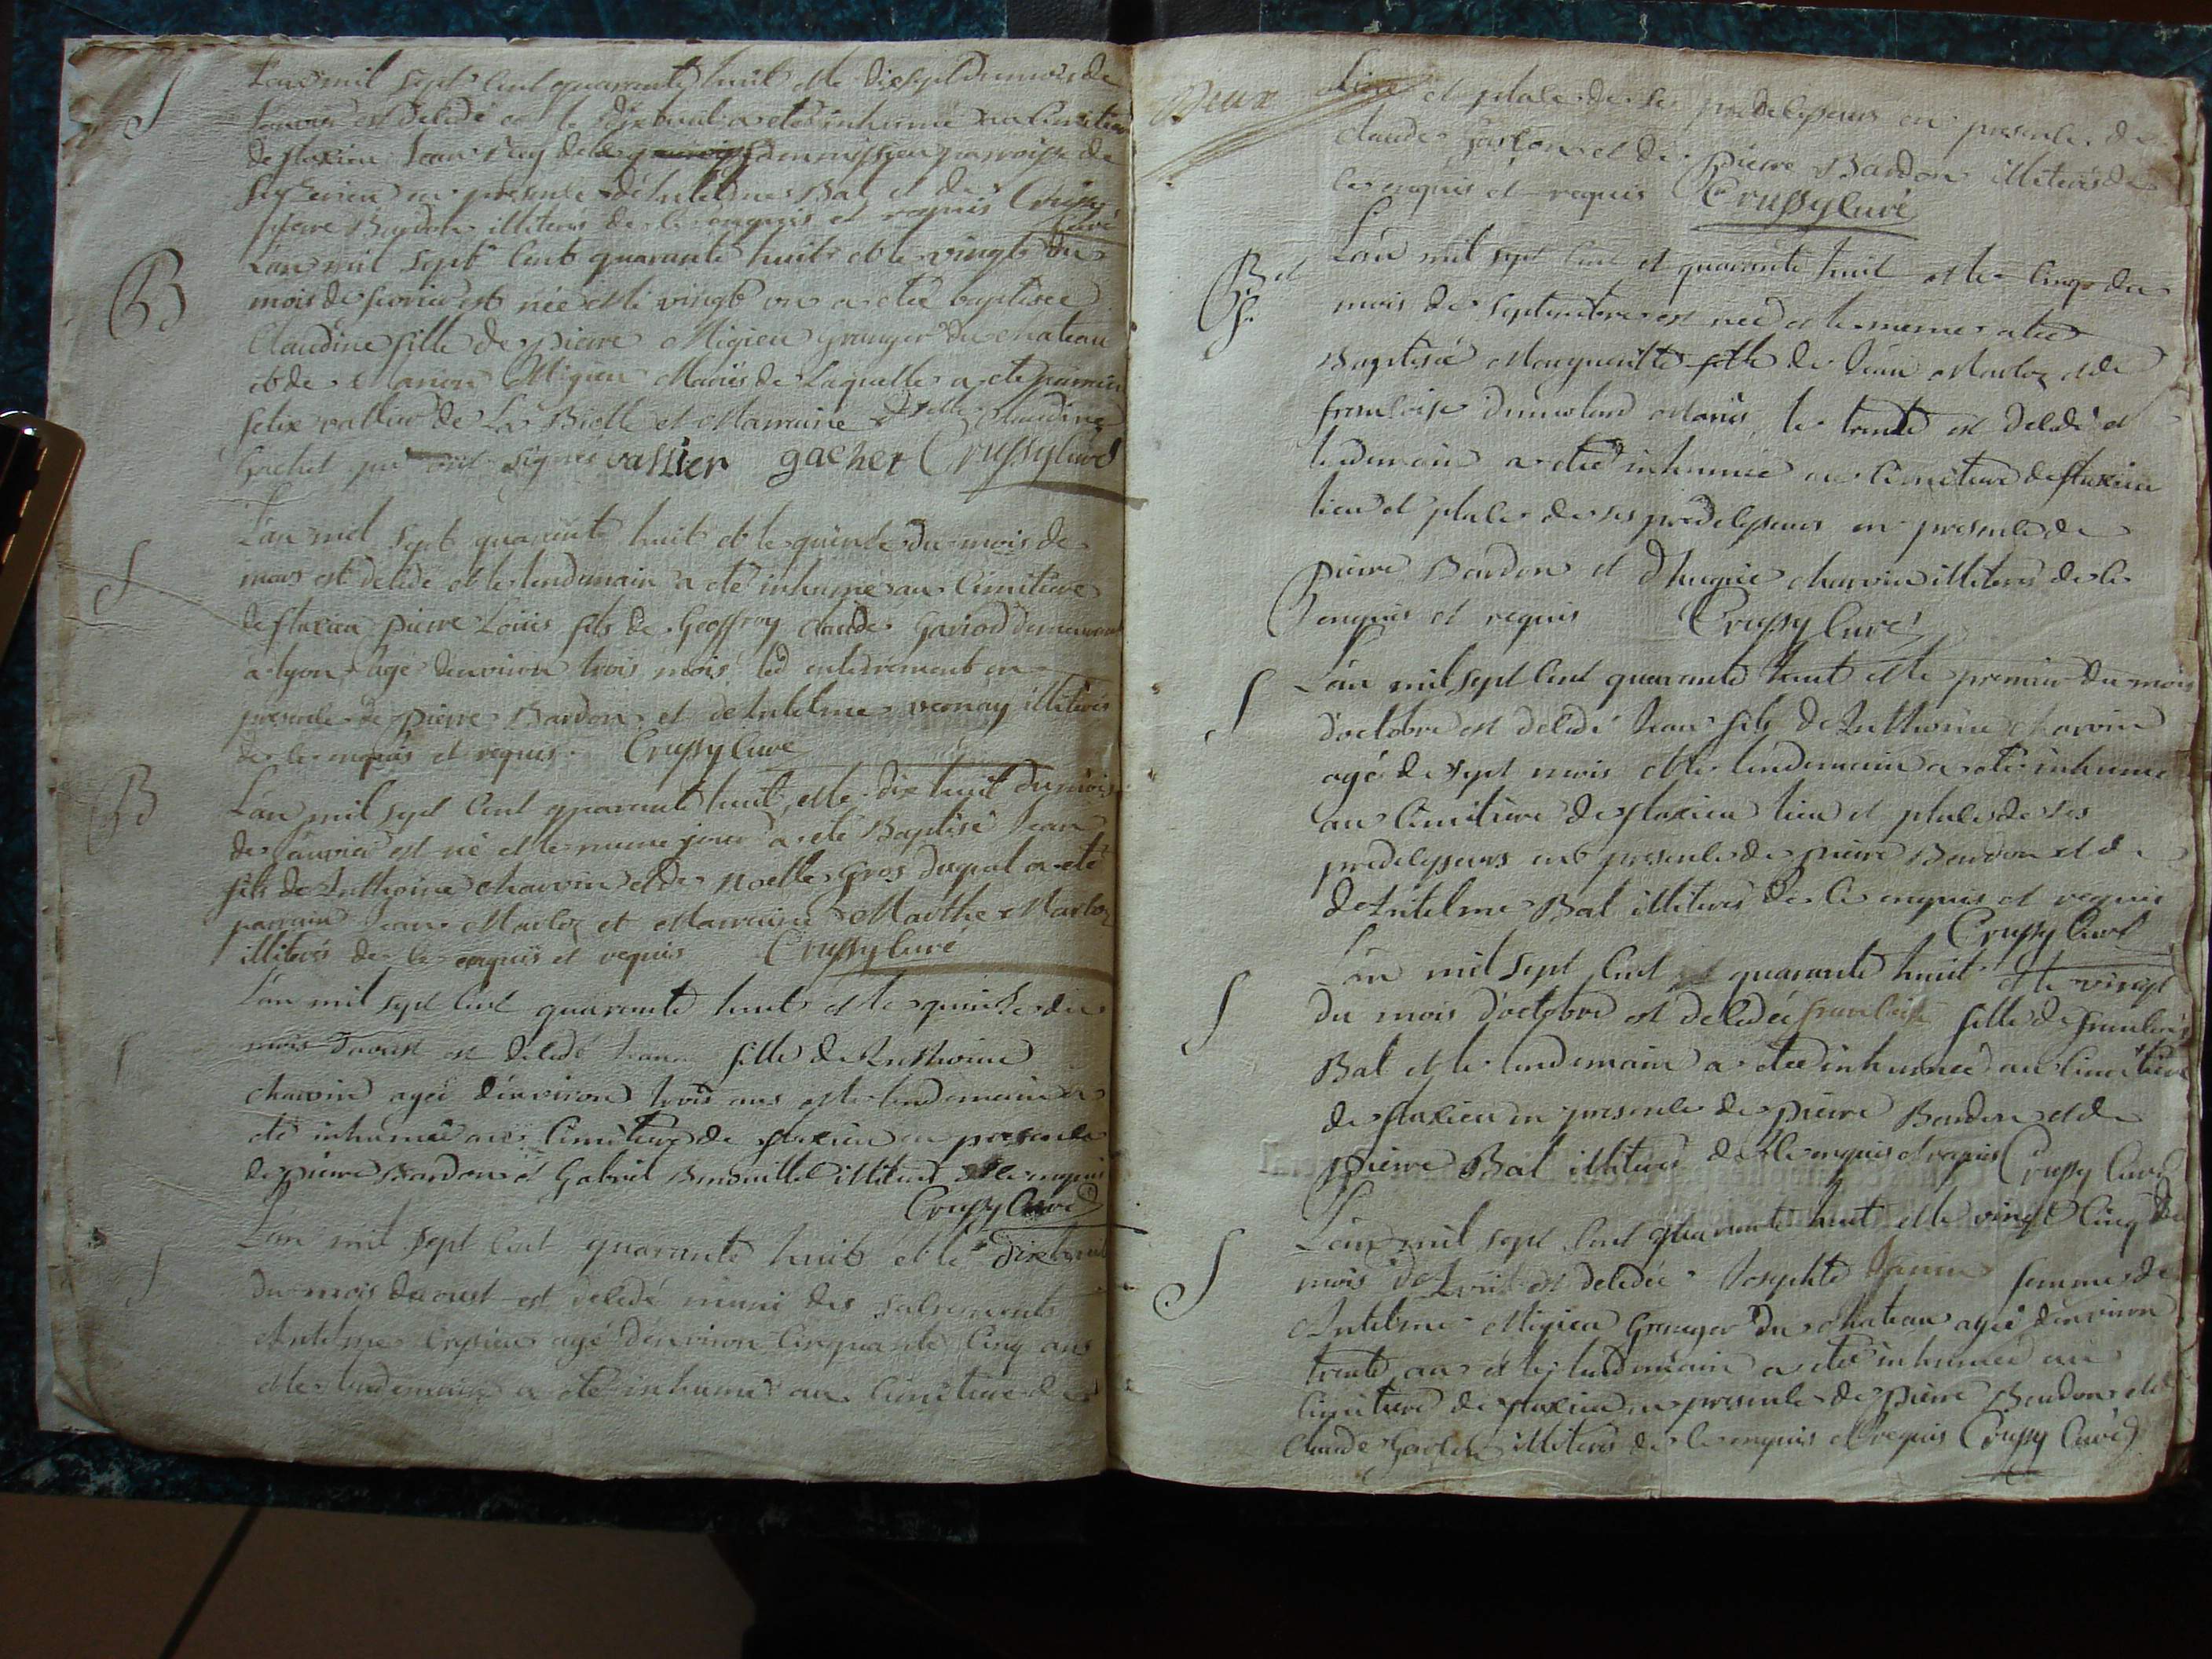 S
L'an mil sept cent quarante huit et le dix sept du mois de
Janvier est decedé et le dix huit a eté inhumé au cimetiere
de flaxieu Jean Ruy de paroisse de
en presence d'Antelme Bal et de
pierre Bardon illiterés de ce enquis et requis Crussy
Curé
B
L'an mil sept cents quarante huit et le vingt du
mois de fevrier est née et le vingt un a etée baptisée
Claudine fille de pierre Migieu granger du chateau
et de Marion Migieu Mariés de Laquelle a eté parrain
felix vallier de La Bielle et Marraine Dlle Claudine
Gachet qui ont signé vallier gachet Crussy curé
S
L'an mil sept quarante huit et le quinze du mois de
mars est decedé et le lendemain a eté inhumé au Cimitiere
de flaxieu pierre Louis fils de Geoffroy claude Gariod demeurant
a lyon agé denviron trois mois led enterrement en
presence de pierre Bardon et de Antelme vernay illiterés
de ce enquis et requis. Crussy Curé
B
L'an mil sept cent quarante huit et le dix huit du mois
de Janvier est né et le meme jour a eté Baptisé Jean
fils de Anthoine charvin et de Noelle Gros duquel a eté
parrain Jean Marloz et Marraine Marthe Marloz
illiterés de ce enquis et requis Crussy Curé
S
L'an mil sept cent quarante huit et le quinze du
mois d'aoust est decedé Jeanne fille de Anthoine
charvin agée denviron trois ans et le lendemain a
eté inhumée au Cimitiere de flaxieu en presence
de pierre Bardon et Gabriel illiterés de ce enquis
Crussy Curé
S
L'an mil sept cent quarante huit et le dix huit
du mois daoust est decedé muni des sacrements
Antelme agé denviron cinquante cinq ans
et le lendemain a eté inhumé au Cimitiere de
Deux
lieu et place de ses predecesseurs en presence de
claude et de pierre Bardon illiterés de
ce enquis et requis Crussy Curé
B et
S.
L'an mil sept cent et quarante huit et le cinq du
mois de septembre est née et le meme a eté
Baptisée Marguerite fille de Jean Marloz et de
francoise Mariés, le trente est decedé et
lendemain a etée inhumée au cimitiere de flaxieu
lieu et place de ses predecesseurs en presence de
pierre Bardon et d'hugue charvin illiterés de ce
enquis et requis Crussy Curé
S
L'an mil sept cent quarante huit et le premier du mois
d'octobre est decedé Jean fils de Anthoine charvin
agé de sept mois et le lendemain a eté inhumé
au Cimitiere de flaxieu lieu et place de ses
predecesseurs en presence de pierre Bardon et de
de Antelme Bal illiterés de ce enquis et requis
Crussy Curé
S
L'an mil sept cent quarante huit et le vingt
du mois d'octobre est decedée francoise fille de francois
Bal et le lendemain a etée inhumée au Cimitiere
de flaxieu en presence de pierre Bardon et de
pierre Bal illiterés de ce enquis et requis Crussy Curé
S
L'an mil sept cent quarante huit et le vingt cinq du
mois de est decedée Josephte femme de
Antelme Migieu Granger du chateau agée denviron
trente ans et le lendemain a etée inhumée au
Cimitiere de flaxieu en presence de pierre Bardon et de
Claude illiterés de ce enquis et requis Crussy Curé